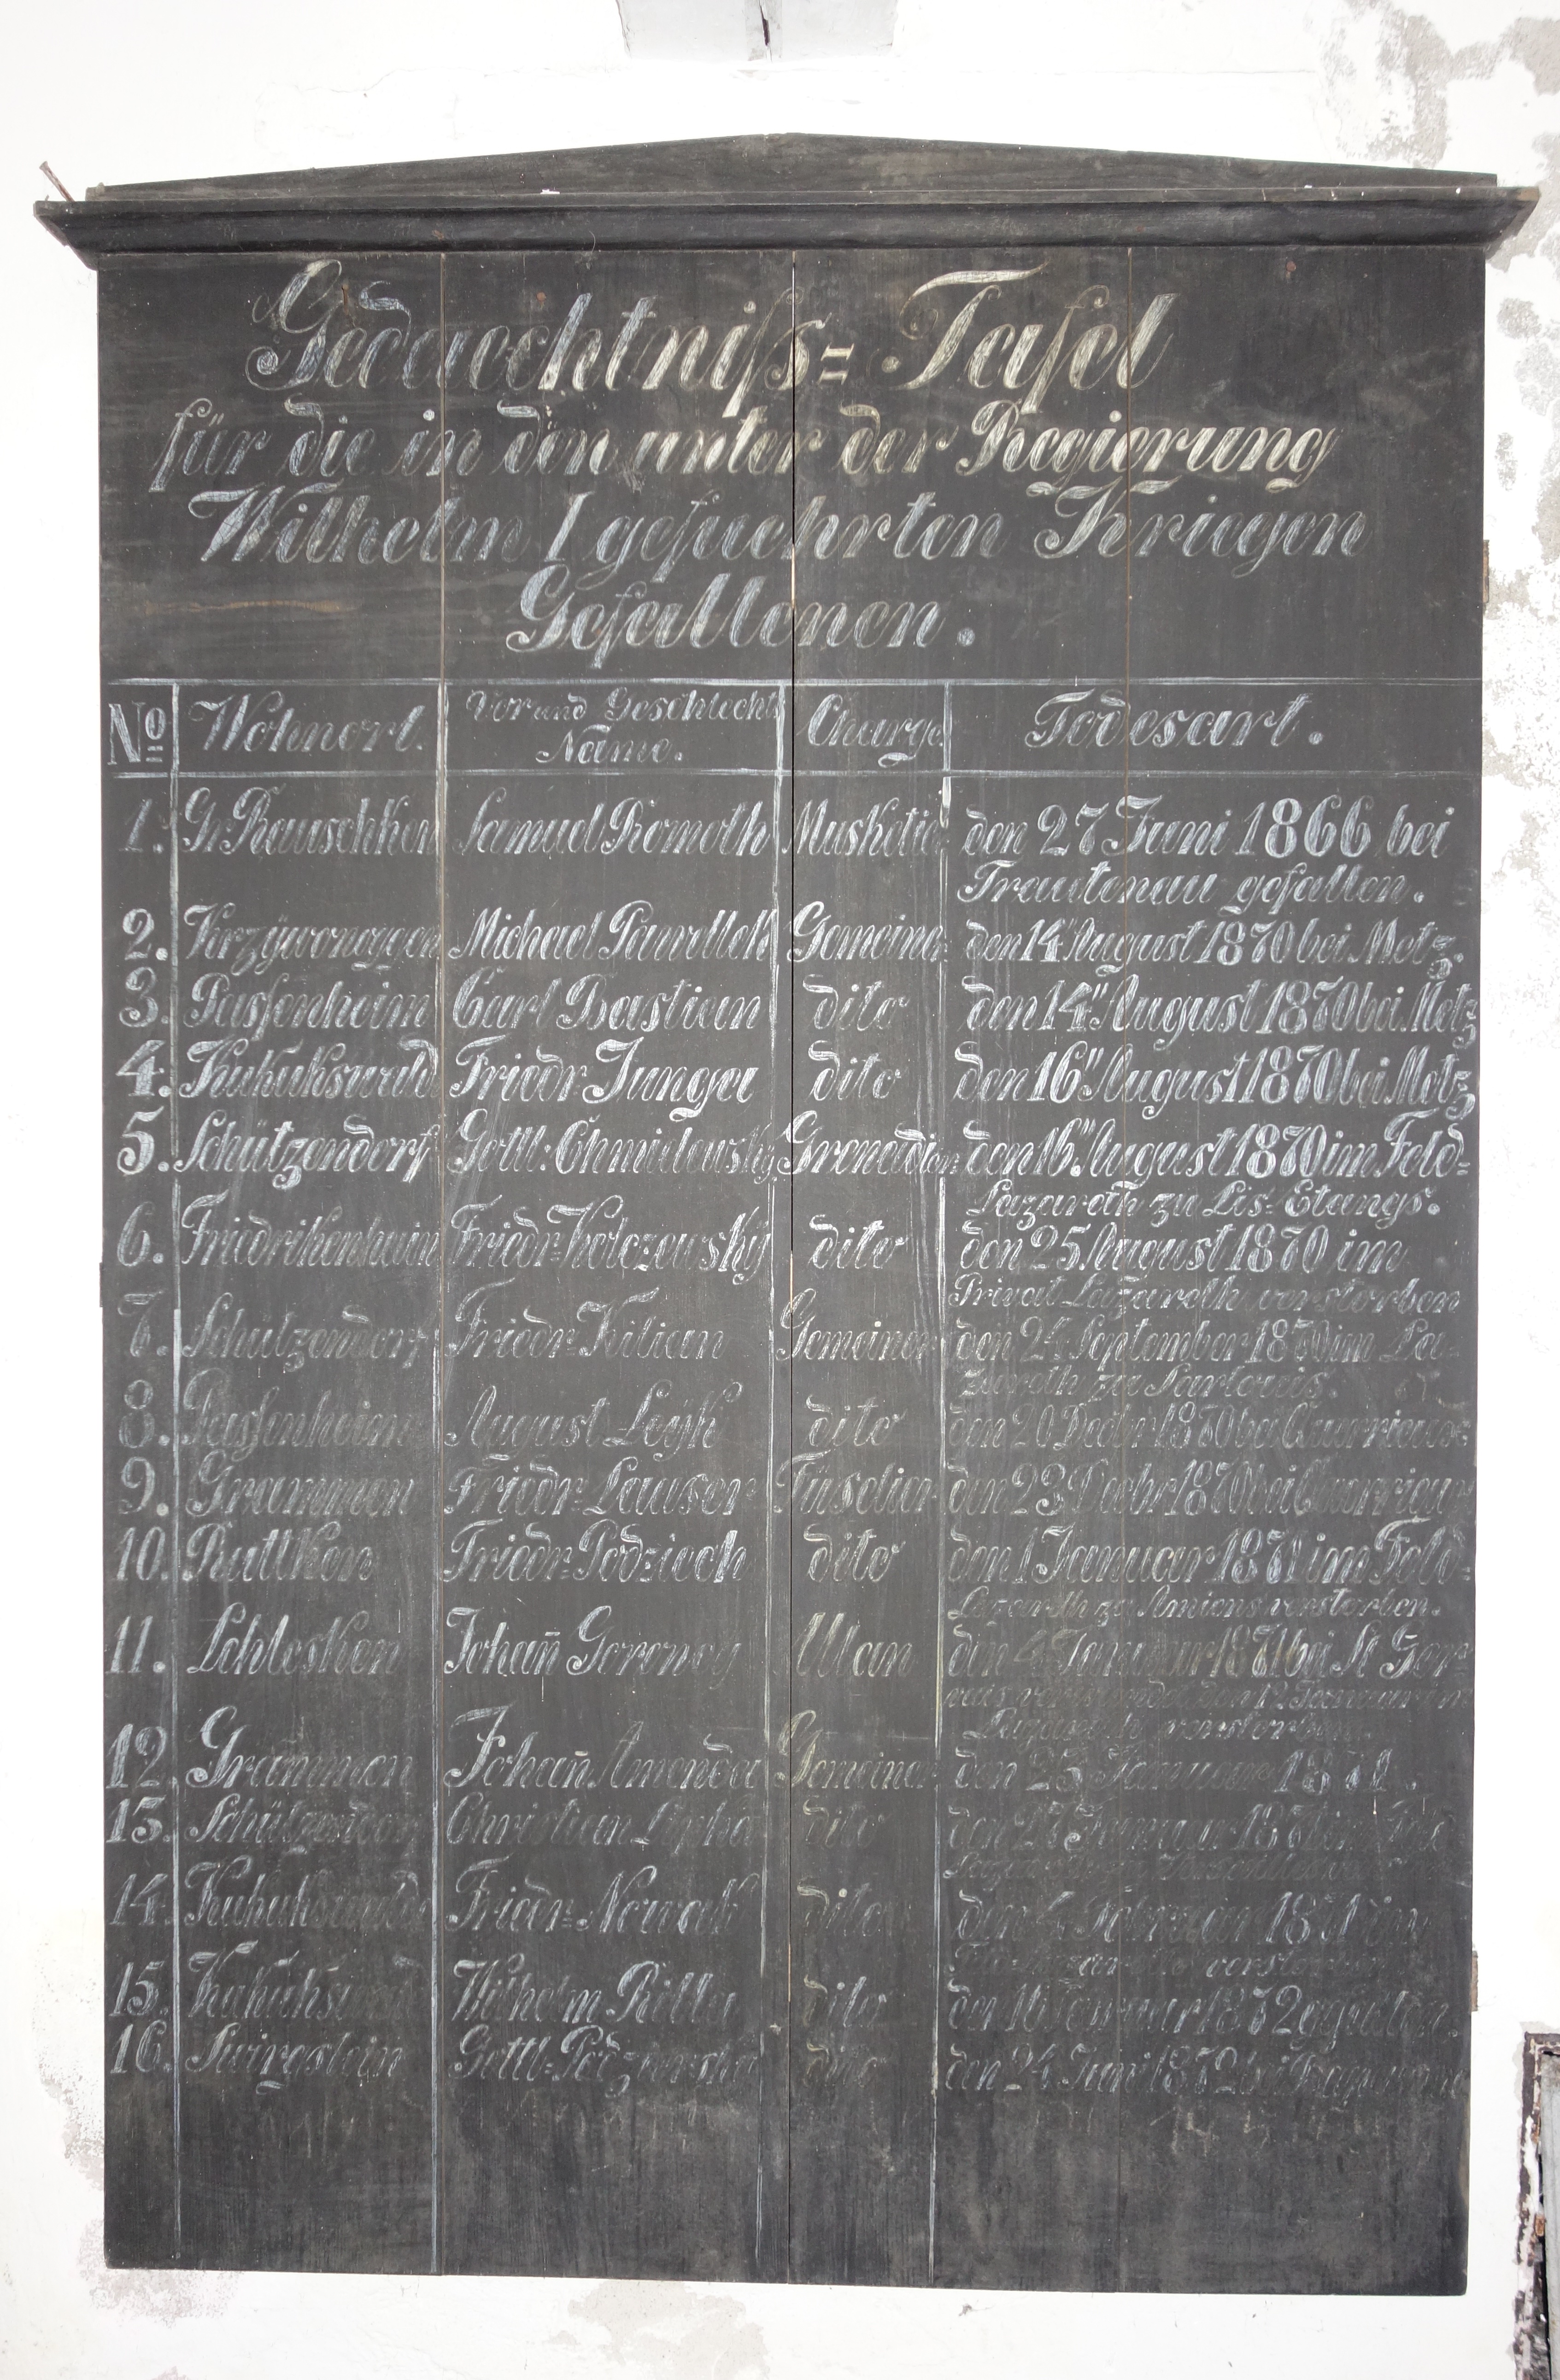 Gedaechtniß=Tafel
für die in den unter der Regierung
Wilhelm I gefuehrten Kriegen
Gefallenen.
No Wohnort. Vor und Geschlechts Name. Charge. Todesart.
1. Gr. Rauschken Samuel Romoth Musketier den 27 Juni 1866 bei
Trautenau gefallen.
2. Michael Pawellek Gemeiner den 14" August 1870 bei Metz.
3. Passenheim Carl Bastian dito den 14" August 1870 bei Metz
4. Kukukswald Friedr Junga dito den 16" August 1870 bei Metz
5. Schützendorf Gottl: Chmielewsky Grenadier den 16" August 1870 im Feld=
Lazareth zu Les=Etangs.
6. Friedrikenhain Friedr= Kolczewsky dito den 25 August 1870 im
Privat Lazareth verstorben
7. Schützendorf Friedr= Kilian Gemeiner den 24 September 1870 im La=
zareth zu Sarlouis.
8. Passenheim August Leyk dito den 20 Decbr 1870 bei
9. Grammen Friedr= Lauser Füselier den 23 Decbr 1870 bei
10. Ruttken Friedr= Podziech dito den 1 Januar 1871 im Feld=
Lazareth zu Amiens verstorben.
11. Schlesken Johan̄ Goroncy Ulan den 4 Januar 1871 bei St Ger=
vais den 12 Januar im
verstorben.
12. Gram̄men Johan̄ Amenda Gemeiner den 23 Januar 1871.
13. Schützendorf Christian dito den 27 Januar 1871 im
14. Kukukswald Friedr= Nowak dito den 4 Februar 1871 im
verstorben
15. Kukukswald Wilhelm Rilla dito den Januar 1872
16. Gottl= dito den 24 Juni 1872 bei